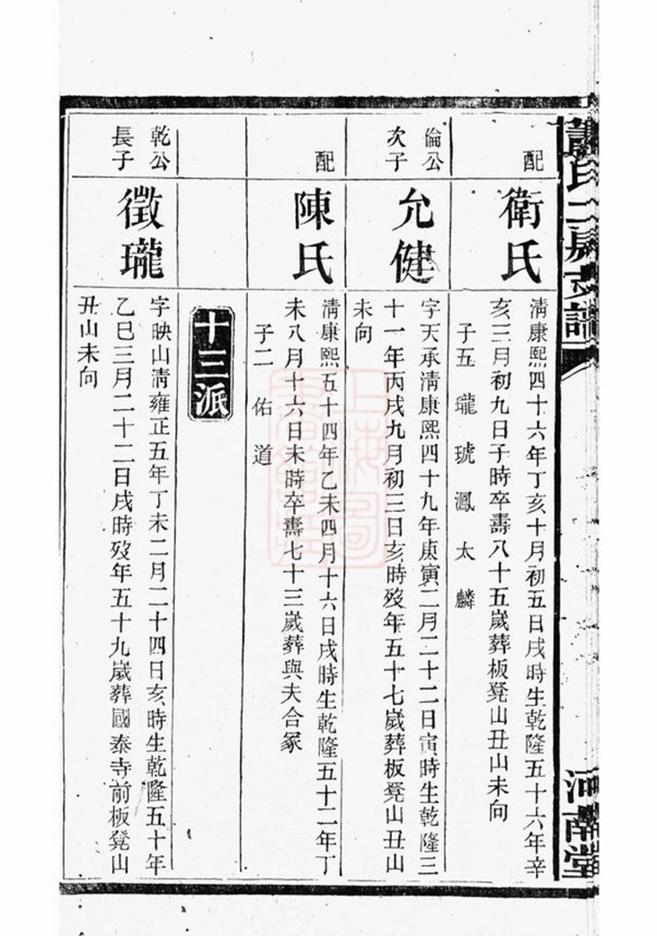 配
衛氏
清康熙四十六年丁亥十月初五日戌時生乾隆五十六年辛
亥三月初九日子時卒壽八十五歲葬板凳山丑山未向
子五 瓏 琥 鳳 太 麟
倫公次子
允健
字天承清康熙四十九年庚寅二月二十二日寅時生乾隆三
十一年丙戌九月初三日亥時歿年五十七歲葬板凳山丑山
未向
配
陳氏
清康熙五十四年乙未四月十六日戌時生乾隆五十二年丁
未八月十六日未時卒壽七十三歲葬與夫合冢
子二 佑 道
十三派
乾公長子
徵瓏
字映山清雍正五年丁未二月二十四日亥時生乾隆五十年
乙巳三月二十二日戌時歿年五十九歲葬國泰寺前板凳山
丑山未向
河南堂